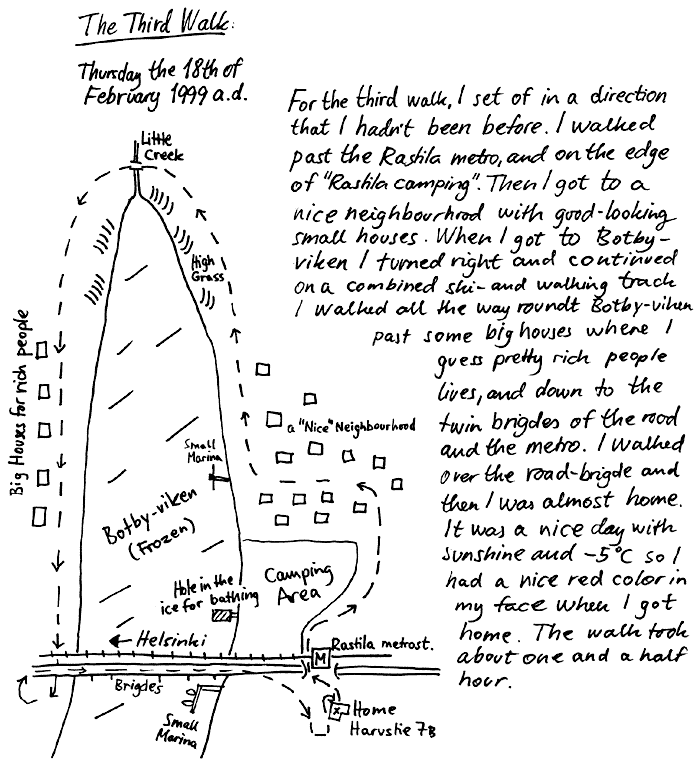 The Third Walk:
Thursday the 18th of
February 1999 a.d.
For the third walk, I set of in a direction
that I hadn't been before. I walked
past the Rastila metro, and on the edge
of "Rastila camping". Then I got to a
nice neighbourhood with good-looking
small houses. When I got to Botby-
viken I turned right and continued
on a combined ski- and walking track
I walked all the way roundt Botby-viken
past some big houses where I
guess pretty rich people
lives, and down to the
twin brigdes of the road
and the metro. I walked
over the road-brigde and
then I was almost home.
It was a nice day with
sunshine and -5°C so I
had a nice red color in
my face when I got
home. The walk took
about one and a half
hour.
Little
Creek
High
Grass
Big Houses for rich people
a "Nice" Neighbourhood
Small
Marina
Botby-viken
(Frozen)
Hole in the
ice for bathing
Camping
Area
Helsinki
Rastila metrost.
M
Brigdes
Small
Marina
Home
Harustie 7B